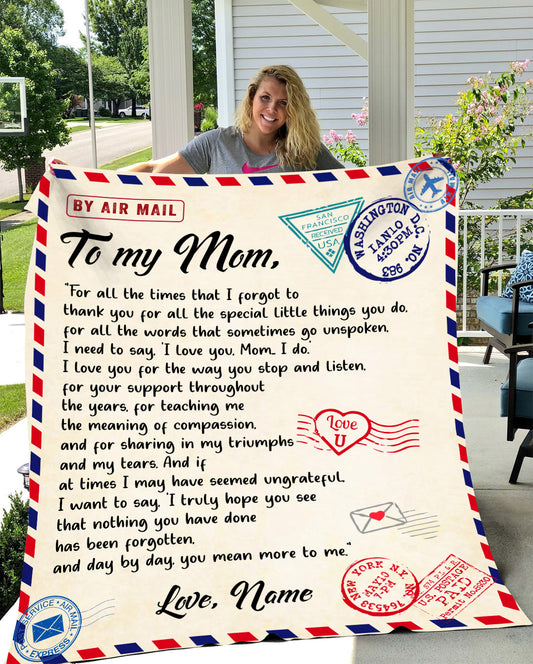 BY AIR MAIL
SAN FRANCISCO
RECEIVED
USA
WASHINGTON D.C.
IANLO
4:30PM
NO. 983
To my Mom,
"For all the times that I forgot to
thank you for all the special little things you do,
for all the words that sometimes go unspoken,
I need to say, 'I love you, Mom... I do.'
I love you for the way you stop and listen,
for your support throughout
the years, for teaching me
the meaning of compassion,
and for sharing in my triumphs
and my tears. And if
at times I may have seemed ungrateful,
I want to say, 'I truly hope you see
that nothing you have done
has been forgotten,
and day by day, you mean more to me."
Love
U
Love, Name
NEW YORK N.Y.
MAY10
764539
U.S. POSTAGE
PAID
SERVICE AIR MAIL
EXPRESS